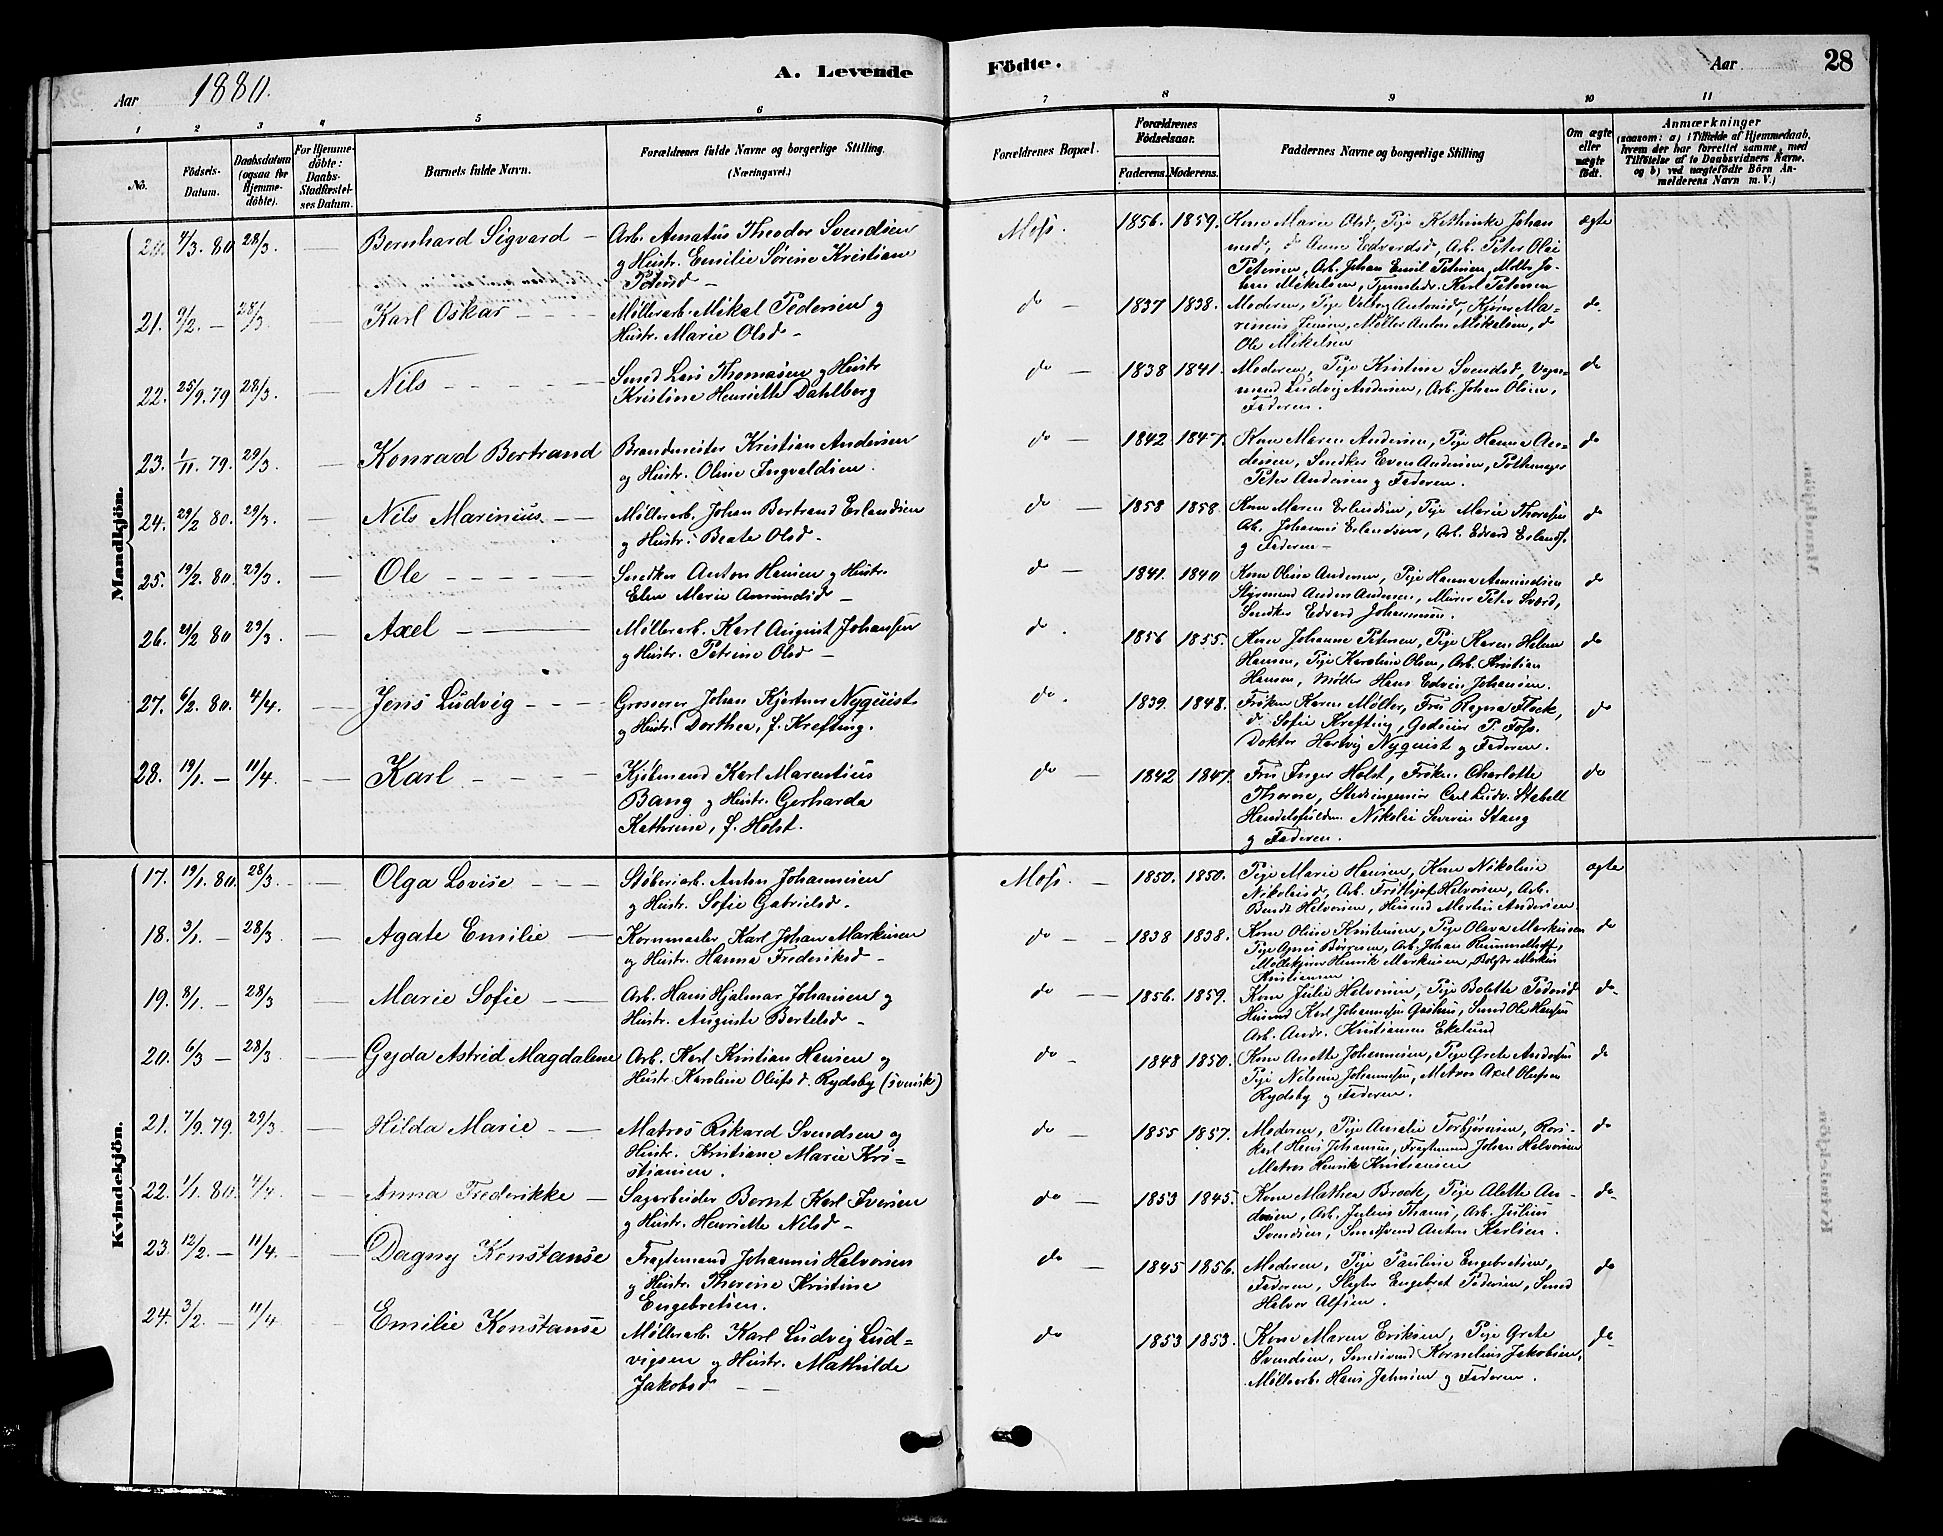 Aar 1880.
A. Levende
Födte.
Aar
28
1 2 3 4 5 6 7 8 9 10 11
No.
Födsels-Datum.
Daabsdatum (ogsaa for Hjemme-döbte).
For Hjemme-döbte: Daabs-Stadfæstel-ses Datum.
Barnets fulde Navn.
Forældrenes fulde Navne og borgerlige Stilling.
(Næringsvei.)
Forældrenes Bopæl.
Forældrenes Födselsaar.
Faderens. Moderens.
Faddernes Navne og borgerlige Stilling
Om ægte eller uægte födt.
Anmærkninger
(saasom: a) i Tilfælde af Hjemmedaab,
hvem der har forrettet samme, med
Tilföielse af to Daabsvidners Navne.
og b) ved uægtefödte Börn An-
melderens Navn m. V.)
Mandkjön.
20. 4/3. 80. 28/3. — Bernhard Sigvard — Arb. Amatus Theodor Svendsen
og Hustr. Emilie Sørine Kristiane
Petersd —
Moss. 1856. 1859. Kone Marie Olsd, Pige Kathinka Johan
nesd, do Anne Edvardsd, Arb. Peter Olai
Petersen, Arb. Johan Emil Petersen, Møller Jo-
han Mikelsen, Karl Petersen
ægte
21. 9/2. — 28/3. — Karl Oskar — Møllerarb. Mikal Pedersen og
Hustr. Marie Olsd —
do — 1837 1838. Moderen, Pige Valborg Antonsd, Kjører Ma-
rinius Jensen, Møller Anton Mikelsen, do
Ole Mikelsen
do.
22. 25/9. 79 28/3. — Nils — Smed Lars Thomasen og Hustr
Kristine Henriette Dahlborg
do — 1838 1841. Moderen, Pige Kristine Svendsd, Vogn-
mand Ludvig Andersen, Arb. Johan Olsen,
Faderen.
do
23. 1/11. 79. 29/3. — Konrad Bertrand Brandmester Kristian Andersen
og Hustr. Oline Ingvaldsen.
do — 1842 1847. Kone Maren Andersen, Pige Hanna An-
dersen, Snedker Even Andersen, Pottemager
Peter Andersen og Faderen.
do
24. 29/2 80. 29/3. — Nils Marinius. — Møllerarb. Johan Bertrand Erlandsen
og Hustr. Beate Olsd.
do 1858 1858. Kone Maren Erlandsen, Pige Marie Thoresen
Arb. Johannes Erlandsen, Arb. Edvard Erlands.
og Faderen —
do
25. 19/2. 80. 29/3. — Ole — Snedker Anton Hansen og Hustr.
Elen Marie Amundsd —
do — 1841. 1840 Kone Oline Andersen, Pige Hanna Amundsen
Styrmand Anders Andersen, Murer Peter Sværd,
Snedker Edvard Johannesen.
do
26. 21/2 80 29/3. — Axel — Møllerarb. Karl August Johansen
og Hustr. Petrine Olsd —
do. 1856 1855. Kone Johanne Petersen, Pige Karen Helene
Hansen, Pige Karoline Olsen, Arb. Kristian
Hansen, Møller Hans Edvin Johansen.
do
27. 6/2. 80. 4/4. — Jens Ludvig — Grosserer Johan Kjerlner Nyquist
og Hustr. Dorthea, f. Krefting.
do. 1839. 1848. Frøken Karen Møller, Fru Ragna Flock,
do Sofie Krefting, Godseier P. Foss.
Doktor Hartvig Nyquist og Faderen.
do
28. 19/1. — 11/4. — Karl — Kjøbmand Karl Marentius
Bang og Hustr. Gerharda
Kathrine, f. Holst.
do — 1842 1847. Fru Inger Holst, Frøken Charlotte
Thorne, Stadsingeniør Carl Ludv. Stabell
Handelsfuldm. Nikolai Severin Stang
og Faderen.
do
Kvindekjön.
17. 19/1. 80. 28/3. — Olga Lovise — Støberiarb. Anton Johannesen
og Hustr. Sofie Gabrielsd.
Moss. — 1850. 1850. Pige Marie Hansen, Kone Nikoline
Nikolaisd, Arb. Frithjof Halvorsen, Arb.
Bendt Halvorsen, Husmd Martin Andersen
ægte
18. 3/1. — 28/3. — Agate Emilie — Kornmaaler Karl Johan Markusen
og Hustr. Hanna Frederiksd —
do — 1838 1838. Kone Oline Kristensen, Pige Olava Markusen
Pige Agnes Børresen, Arb. Johan Rummelhoff,
Henrik Markusen, Markus
Kristiansen
do
19. 8/1. — 28/3 — Marie Sofie — Arb. Hans Hjalmar Johansen og
Hustr. Auguste Bertelsd —
do — 1856. 1859. Kone Julie Halvorsen, Pige Bolette Pedersd
Husmd Karl Johannesen Gashus, Smed Ole Hansen
Arb. Andr. Kristiansen Ekelund
do.
20. 6/3 — 28/3 — Gyda Astrid Magdalene Arb. Karl Kristian Hansen og
Hustr. Karoline Olufsd. Rydsby (svensk)
do — 1848 1850. Kone Anette Johannesen, Pige Grete Andersen
Pige Nilsine Johannesen, Matros Axel Olufsen
Rydsby og Faderen.
do
21. 7/9. 79. 29/3. — Hilda Marie — Matros Rikard Svendsen og
Hustr. Kristiane Marie Kri-
stiansen.
do — 1855 1857. Moderen, Pige Amalie Torbjørnsen, Rors-
karl Hans Johansen, Fragtemand Johan Halvorsen
Matros Henrik Kristiansen
do
22. 1/1. 80. 4/4. — Anna Frederikke — Sagarbeider Bernt Karl Iversen
og Hustr. Henriette Nilsd —
do — 1853 1845. Kone Mathea Brock, Pige Alette An-
dersen, Arb. Julius Thams, Arb. Julius
Svendsen, Smedsvend Anton Karlsen.
do
23. 12/2. — 11/4. — Dagny Konstanse Fragtemand Johannes Halvorsen
og Hustr. Thorine Kristine
Engebretsen.
do — 1845 1856. Moderen, Pige Pauline Engebretsen,
Faderen, Slagter Engebret Pedersen, Smed
Halvor Alfsen.
do
24. 3/2. — 11/4. — Emilie Konstanse Møllerarb. Karl Ludvig Lud-
vigsen og Hustr. Mathilde
Jakobsd —
do 1853 1853. Kone Maren Eriksen, Pige Grete
Svendsen, Smedsvend Kornelius Jakobsen,
Møllearb. Hans Jensen og Faderen.
do